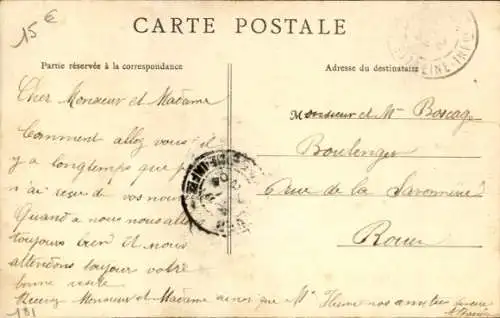 15€
CARTE POSTALE
Partie réservée à la correspondance
Adresse du destinataire
Cher Monsieur et Madame
Comment allez vous il
y a longtemps que je
n'ai reçu de vos nouv
Quand a nous nous allons
toujours bien et nous
attendons toujour votre
bonne visite
Recevez Monsieur et Madame ainsi que Mr nos amitiés
181
Monsieur et Me Boscag
Boulenger
rue de la Savonnerie
Rouen